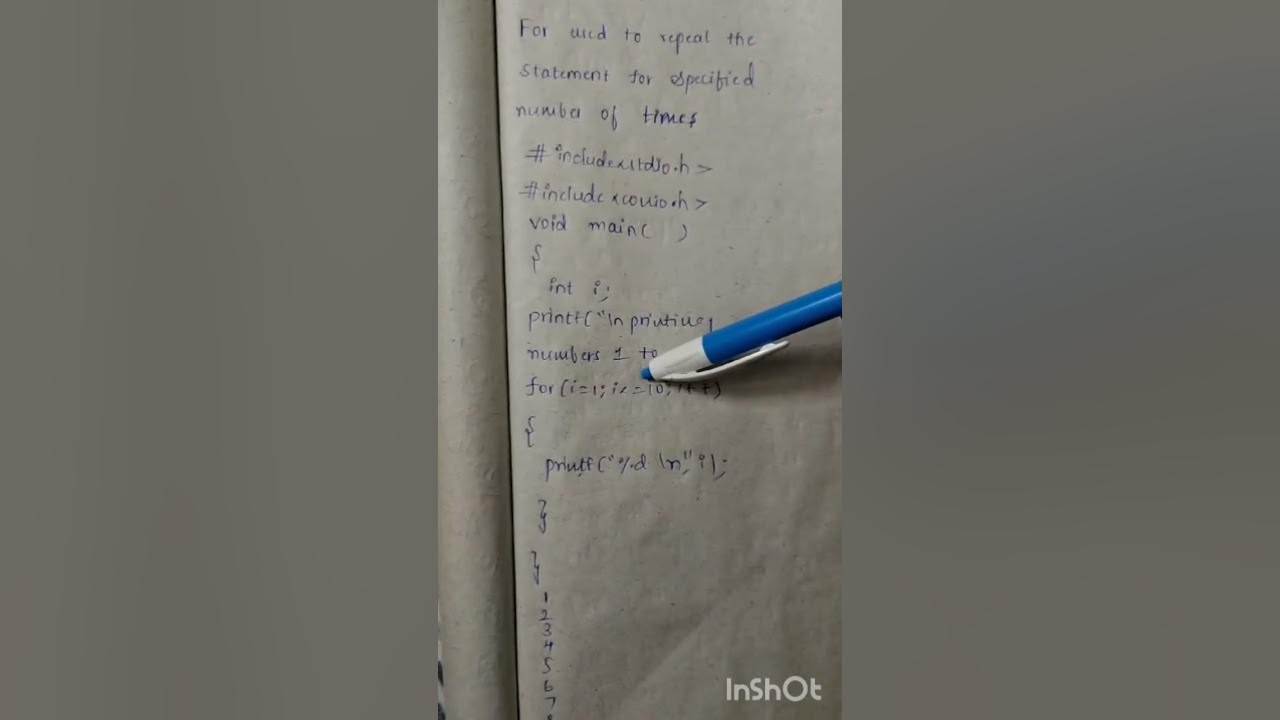 For used to repeat the
statement for specified
number of times
#include<stdio.h>
#include<conio.h>
void main( )
{
int i;
printf("\n printing
numbers 1 to
for(i=1; i<=10; i++)
{
printf("%d \n", i);
}
}
1
2
3
4
5
6
7
InShOt